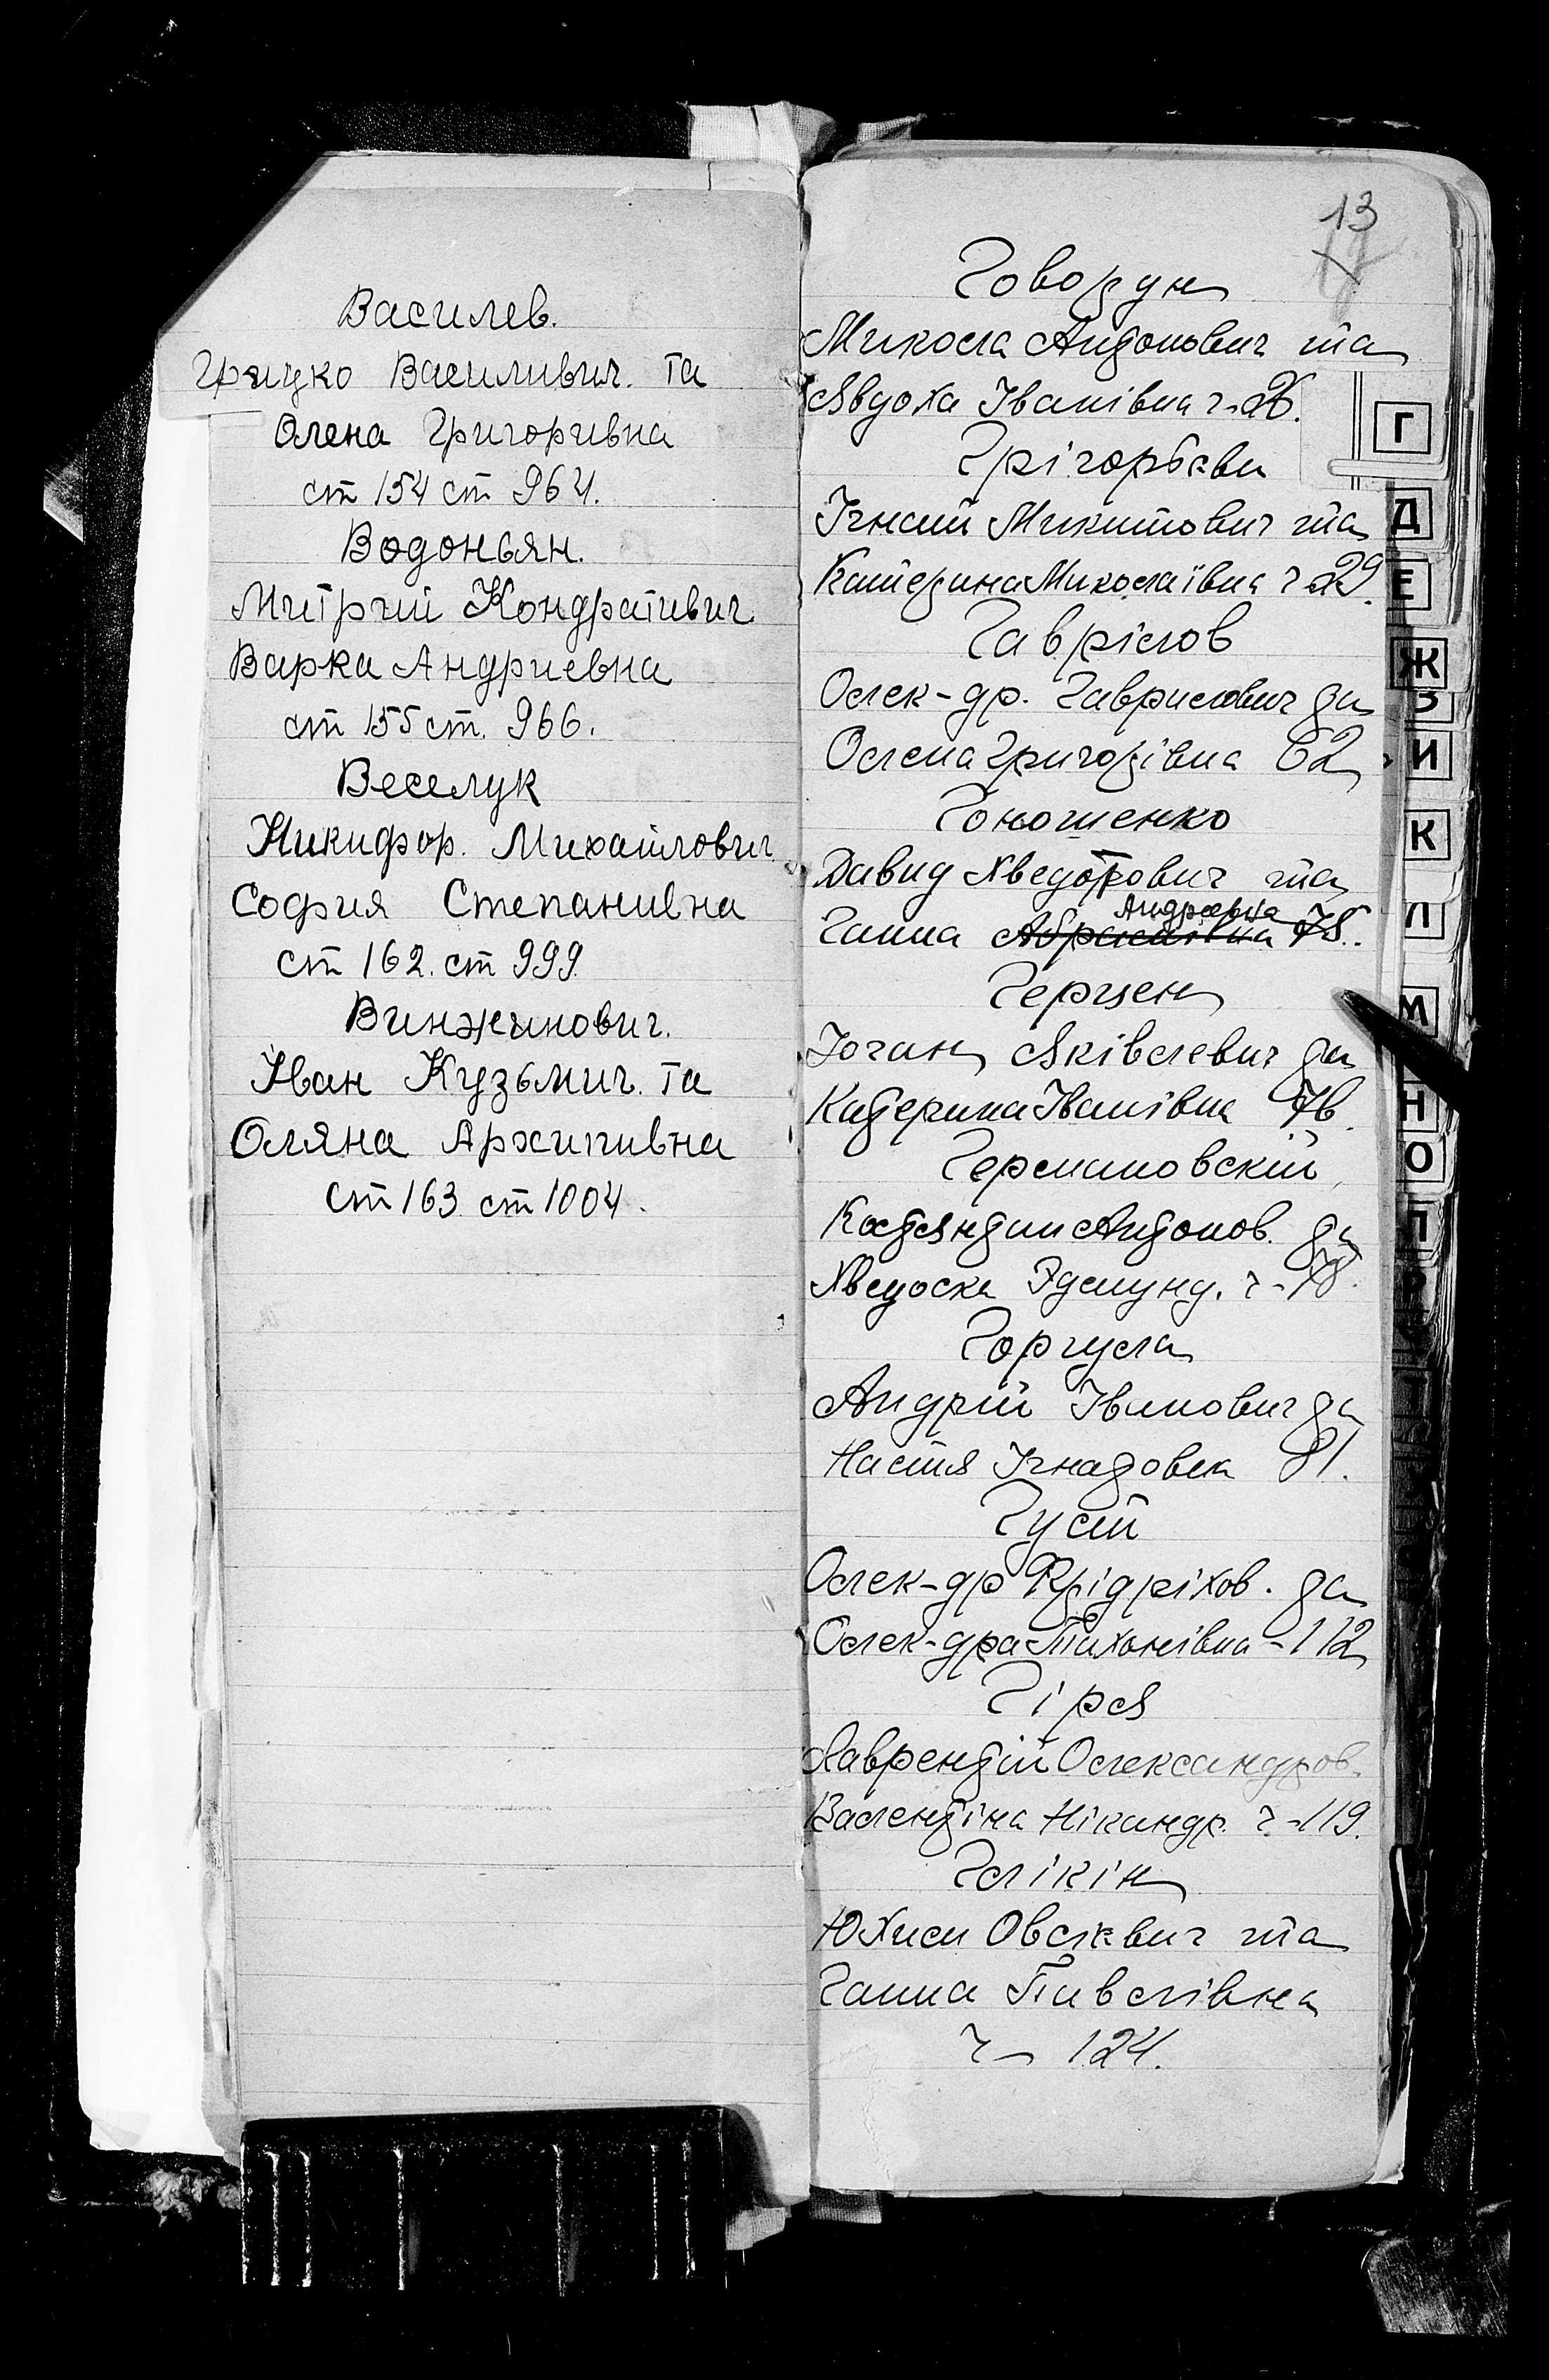 Василев.
Грицко Василивич. та
Олена Григоривна
ст 154 ст 964.
Водоньян.
Митрий Кондративич.
Варка Андриевна
ст 155 ст. 966.
Веселук
Никифор. Михайлович
София Степанивна
ст 162. ст 999.
Винжинович.
Іван Кузьмич. та
Оляна Архипивна
ст 163 ст 1004.
13
17
Говорун
Микола Андонович та
Явдоха Іванівна ч-26.
Грігорьєви
Ігнат Микитович та
Катерина Миколаївна ч-29.
Гаврілов
Олек-др. Гаврилович да
Олена Григорівна 62
Гоношенко
Давид Хведорович та
Андрєевна
Ганна Абрамівна 75.
Герцен
Іоган Яківлевич да
Кадерина Іванівна 76.
Германовскій
Андонов. да
Едмунд. ч-78.
Горгула
Андрій Іванович да
Настя Ігнадовна 81.
Густ
Олек-др Фрідріхов. да
Олек-дра Тихонівна - 112
Гіря
Лаврендій Олександров.
Валендіна Нікандр. ч.-119.
Глікін
Юхим Овсієвич та
Ганна Павлівна
ч- 124.
Г
Д
Е
Ж
З
И
К
Л
М
Н
О
П
Р